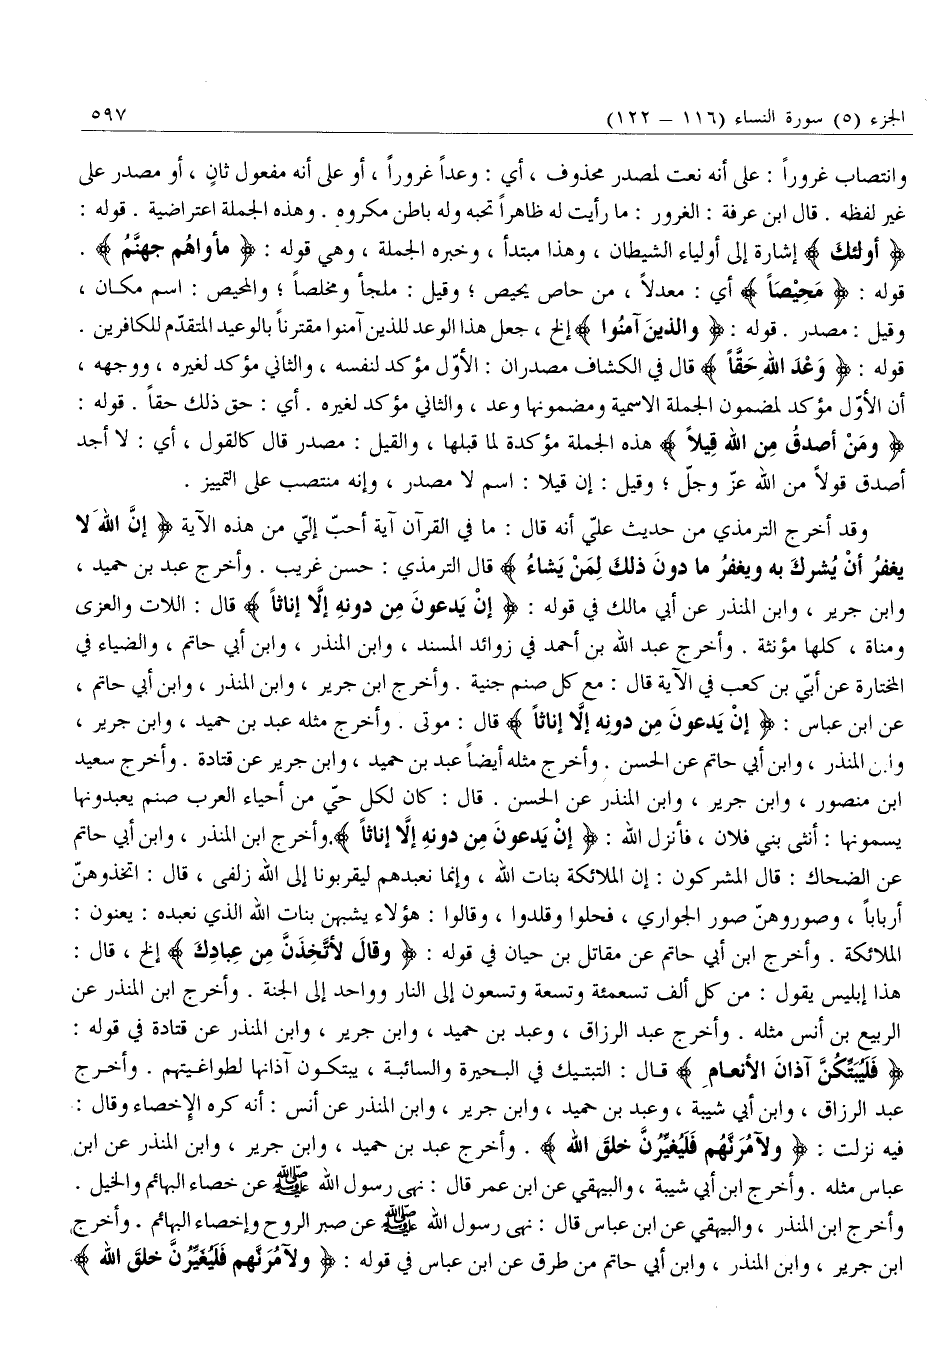 الجزء (٥) سورة النساء (١١٦ – ١٢٢) ٥٩٧
وانتصاب غروراً : على أنه نعت لمصدر محذوف ، أي : وعداً غروراً ، أو على أنه مفعول ثانٍ ، أو مصدر على
غير لفظه . قال ابن عرفة : الغرور : ما رأيت له ظاهراً تحبه وله باطن مكروه . وهذه الجملة اعتراضية . قوله :
﴿ أولئك ﴾ إشارة إلى أولياء الشيطان ، وهذا مبتدأ ، وخبره الجملة ، وهي قوله : ﴿ مأواهُم جهنَّمُ ﴾ .
قوله : ﴿ مَحِيْصَاً ﴾ أي : معدلاً ، من حاص يحيص ؛ وقيل : ملجأ ومخلصاً ؛ والمحيص : اسم مكان ،
وقيل : مصدر . قوله : ﴿ والذينَ آمنُوا ﴾ إلخ ، جعل هذا الوعد للذين آمنوا مقترناً بالوعيد المتقدّم للكافرين .
قوله : ﴿ وَعْدَ اللهِ حَقَّاً ﴾ قال في الكشاف مصدران : الأوّل مؤكد لنفسه ، والثاني مؤكد لغيره ، ووجهه ،
أن الأوّل مؤكد لمضمون الجملة الاسمية ومضمونها وعد ، والثاني مؤكد لغيره . أي : حق ذلك حقاً . قوله :
﴿ ومَنْ أصدقُ مِن الله قِيلاً ﴾ هذه الجملة مؤكدة لما قبلها ، والقيل : مصدر قال كالقول ، أي : لا أجد
أصدق قولاً من الله عزّ وجلّ ؛ وقيل : إن قيلا : اسم لا مصدر ، وإنه منتصب على التمييز .
وقد أخرج الترمذي من حديث عليّ أنه قال : ما في القرآن آية أحبّ إليّ من هذه الآية ﴿ إنَّ اللهَ لا
يغفرُ أنْ يُشركَ به ويغفرُ ما دونَ ذلكَ لِمَنْ يَشاءُ ﴾ قال الترمذي : حسن غريب . وأخرج عبد بن حميد ،
وابن جرير ، وابن المنذر عن أبي مالك في قوله : ﴿ إنْ يَدعونَ مِن دونهِ إلَّا إناثاً ﴾ قال : اللات والعزى
ومناة ، كلها مؤنثة . وأخرج عبد الله بن أحمد في زوائد المسند ، وابن المنذر ، وابن أبي حاتم ، والضياء في
المختارة عن أبيّ بن كعب في الآية قال : مع كل صنم جنية . وأخرج ابن جرير ، وابن المنذر ، وابن أبي حاتم ،
عن ابن عباس : ﴿ إنْ يَدعونَ مِن دونِه إلَّا إناثاً ﴾ قال : موتى . وأخرج مثله عبد بن حميد ، وابن جرير ،
وابن المنذر ، وابن أبي حاتم عن الحسن . وأخرج مثله أيضاً عبد بن حميد ، وابن جرير عن قتادة . وأخرج سعيد
ابن منصور ، وابن جرير ، وابن المنذر عن الحسن . قال : كان لكل حيّ من أحياء العرب صنم يعبدونها
يسمونها : أنثى بني فلان ، فأنزل الله : ﴿ إنْ يَدعونَ مِن دونهِ إلَّا إناثاً ﴾.وأخرج ابن المنذر ، وابن أبي حاتم
عن الضحاك : قال المشركون : إن الملائكة بنات الله ، وإنما نعبدهم ليقربونا إلى الله زلفى ، قال : اتخذوهنّ
أرباباً ، وصوروهنّ صور الجواري ، فحلوا وقلدوا ، وقالوا : هؤلاء يشبهن بنات الله الذي نعبده : يعنون :
الملائكة . وأخرج ابن أبي حاتم عن مقاتل بن حيان في قوله : ﴿ وقالَ لأتَّخِذنَّ مِن عِبادِكَ ﴾ إلخ ، قال :
هذا إبليس يقول : من كل ألف تسعمئة وتسعة وتسعون إلى النار وواحد إلى الجنة . وأخرج ابن المنذر عن
الربيع بن أنس مثله . وأخرج عبد الرزاق ، وعبد بن حميد ، وابن جرير ، وابن المنذر عن قتادة في قوله :
﴿ فَلَيُبَتِّكُنَّ آذانَ الأنعامِ ﴾ قال : التبتيك في البحيرة والسائبة ، يبتكون آذانها لطواغيتهم . وأخرج
عبد الرزاق ، وابن أبي شيبة ، وعبد بن حميد ، وابن جرير ، وابن المنذر عن أنس : أنه كره الإخصاء وقال :
فيه نزلت : ﴿ ولآمُرَنَّهُم فَلَيُغيِّرُنَّ خلقَ الله ﴾ . وأخرج عبد بن حميد ، وابن جرير ، وابن المنذر عن ابن
عباس مثله . وأخرج ابن أبي شيبة ، والبيهقي عن ابن عمر قال : نهى رسول الله ﷺ عن خصاء البهائم والخيل .
وأخرج ابن المنذر ، والبيهقي عن ابن عباس قال : نهى رسول الله ﷺ عن صبر الروح وإخصاء البهائم . وأخرج
ابن جرير ، وابن المنذر ، وابن أبي حاتم من طرق عن ابن عباس في قوله : ﴿ ولآمُرَنَّهم فَلَيُغَيِّرُنَّ خلقَ الله ﴾